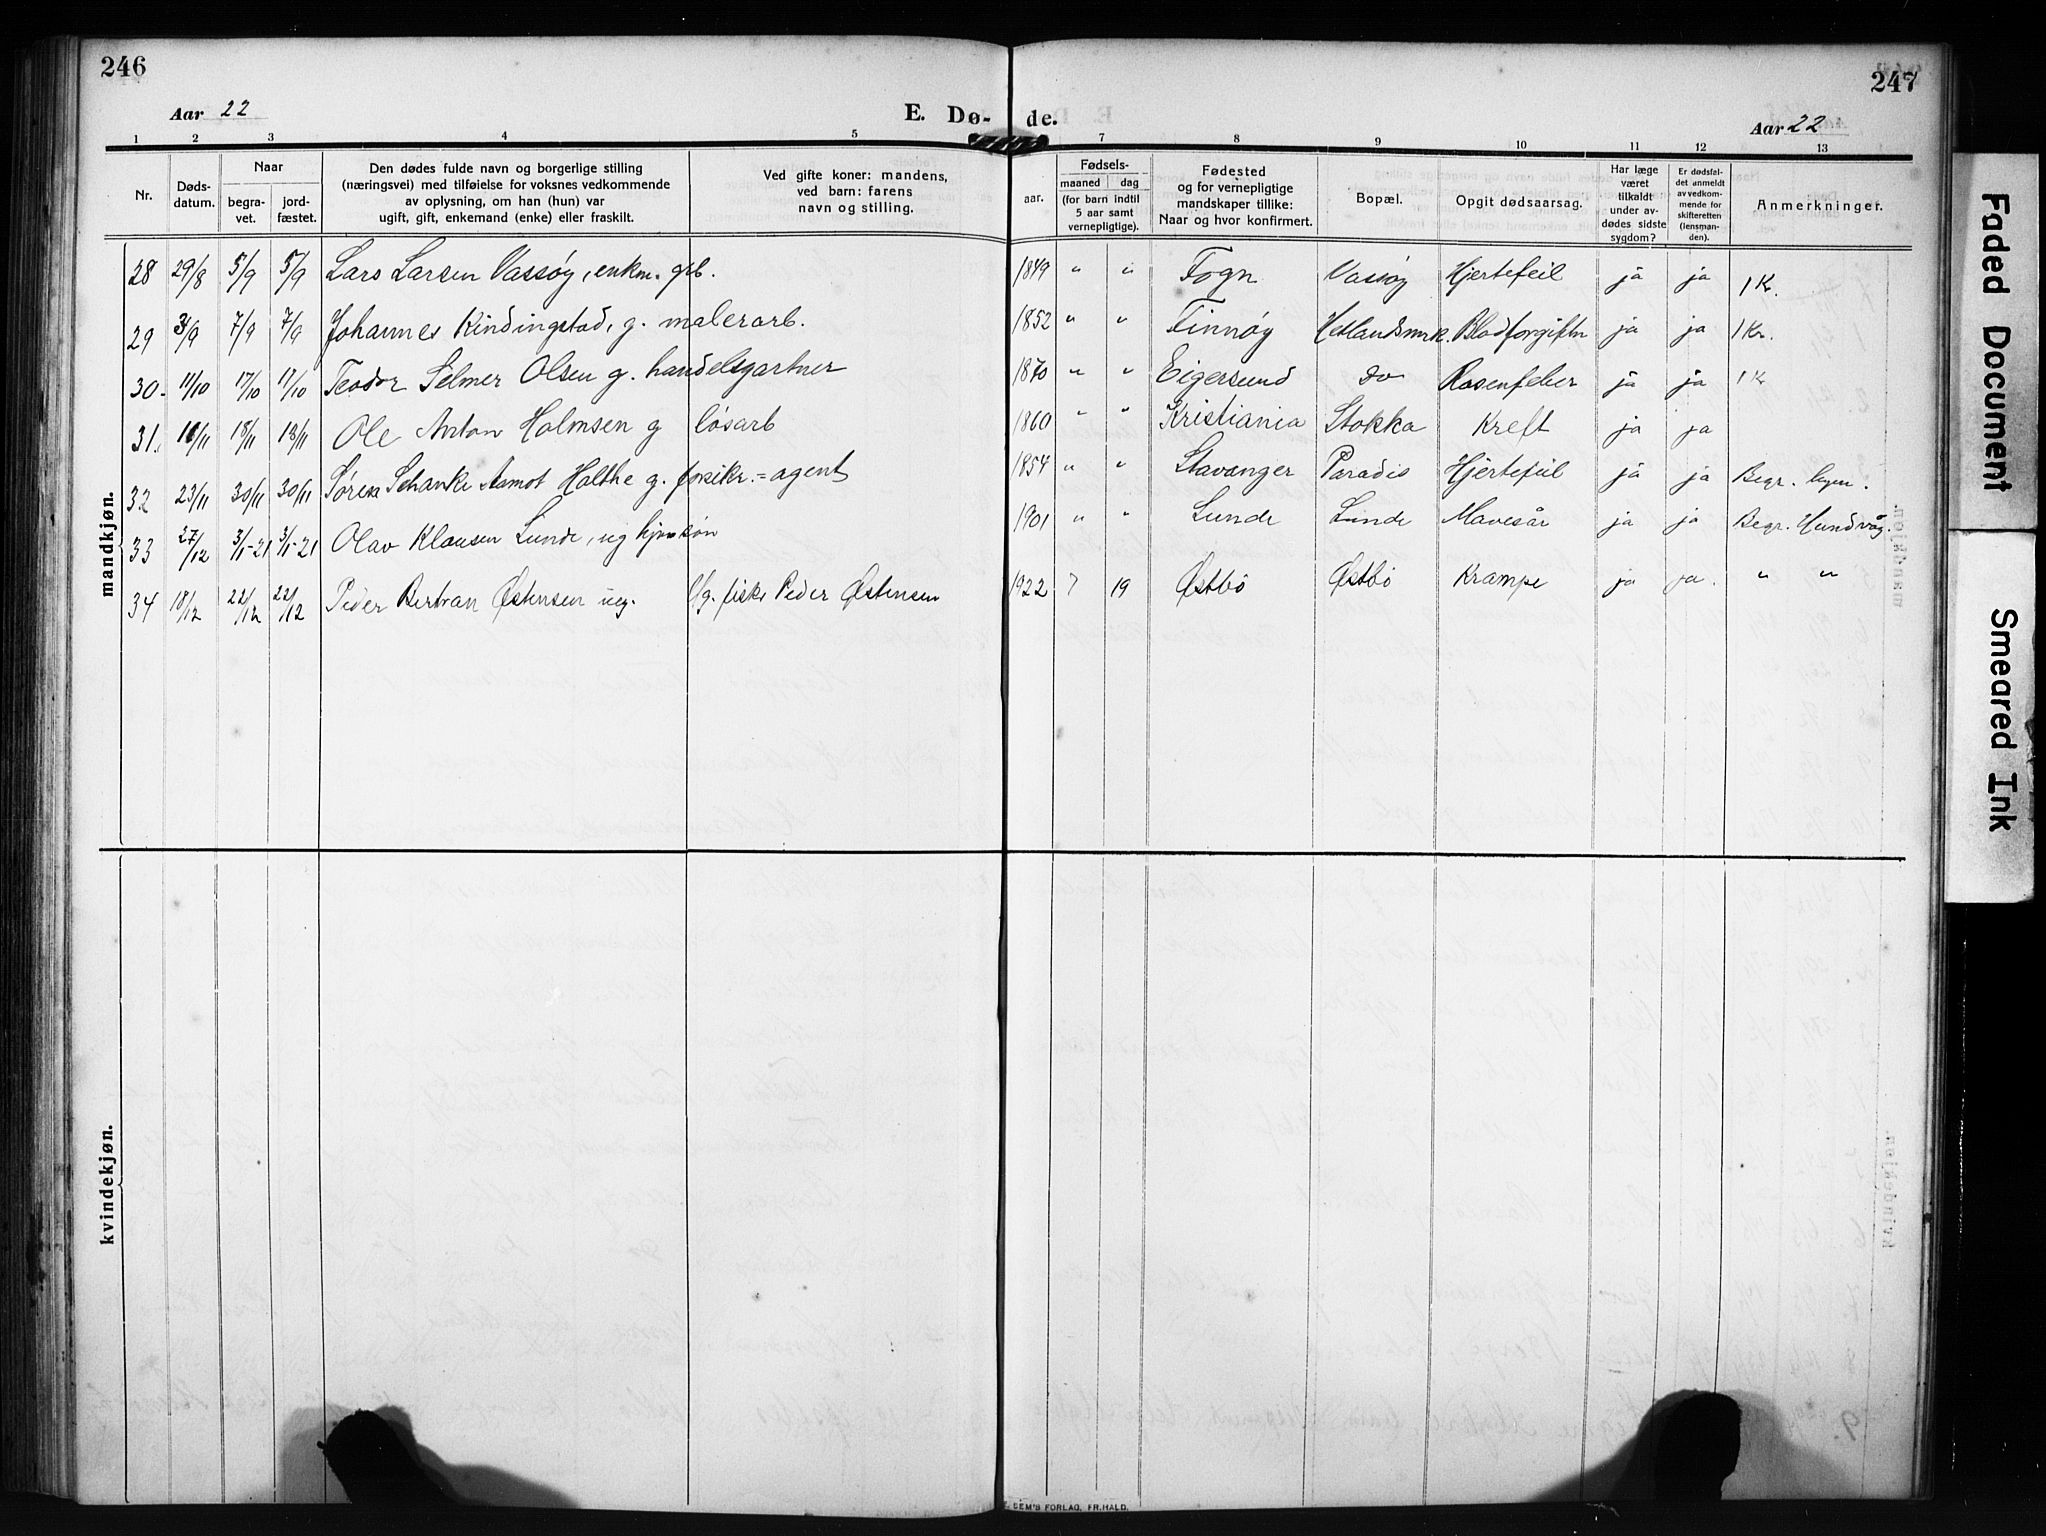 246
247
Aar 22
E. Dø-
de.
Aar 22
1 2 3 4 5 7 8 9 10 11 12 13
Nr.
Døds-
datum.
Naar
begra-
vet.
jord-
fæstet.
Den dødes fulde navn og borgerlige stilling
(næringsvei) med tilføielse for voksnes vedkommende
av oplysning, om han (hun) var
ugift, gift, enkemand (enke) eller fraskilt.
Ved gifte koner: mandens,
ved barn: farens
navn og stilling.
aar.
Fødsels-
maaned dag
(for barn indtil
5 aar samt
vernepligtige).
Fødested
og for vernepligtige
mandskaper tillike:
Naar og hvor konfirmert.
Bopæl.
Opgit dødsaarsag.
Har læge
været
tilkaldt
under av-
dødes sidste
sygdom?
Er dødsfal-
det anmeldt
av vedkom-
mende for
skifteretten
(lensman-
den).
Anmerkninger.
mandkjøn.
28 29/8 5/9 5/9 Lars Larsen Vassøy, enkm. grb. 1849 " " Fogn Vassøy Hjertefeil ja ja 1 Kr.
29 3/9 7/9 7/9 Johannes Kindingstad, g. malerarb. 1852 " " Finnøy Hetlandsmrk. Blodforgiftn ja ja 1 Kr.
30. 11/10 17/10 17/10 Teodor Selmer Olsen g. handelsgartner 1870 " " Eigersund do Rosenfeber ja ja 1 Kr
31. 11/11 18/11 18/11 Ole Anton Holmsen g løsarb 1860 " " Kristiania Stokka Kreft ja ja
32 23/11 30/11 30/11 Søren Schanke Aamot Halthe g. forsikr.=agent 1854 " " Stavanger Paradis Hjertefeil ja ja Begr. byen.
33 27/12 3/1-21 3/1-21 Olav Klausen Lunde, ug 1901 " " Lunde Lunde Mavesår ja ja Begr. Hundvåg.
34 18/12 22/12 22/12 Peder Bertran Østensen ueg. Ug. fisker Peder Østensen 1922 7 19 Østbø Østbø Krampe ja ja. " "
kvindekjøn.
SEM'S FORLAG, FR.HALD.
Faded Document
Smeared Ink